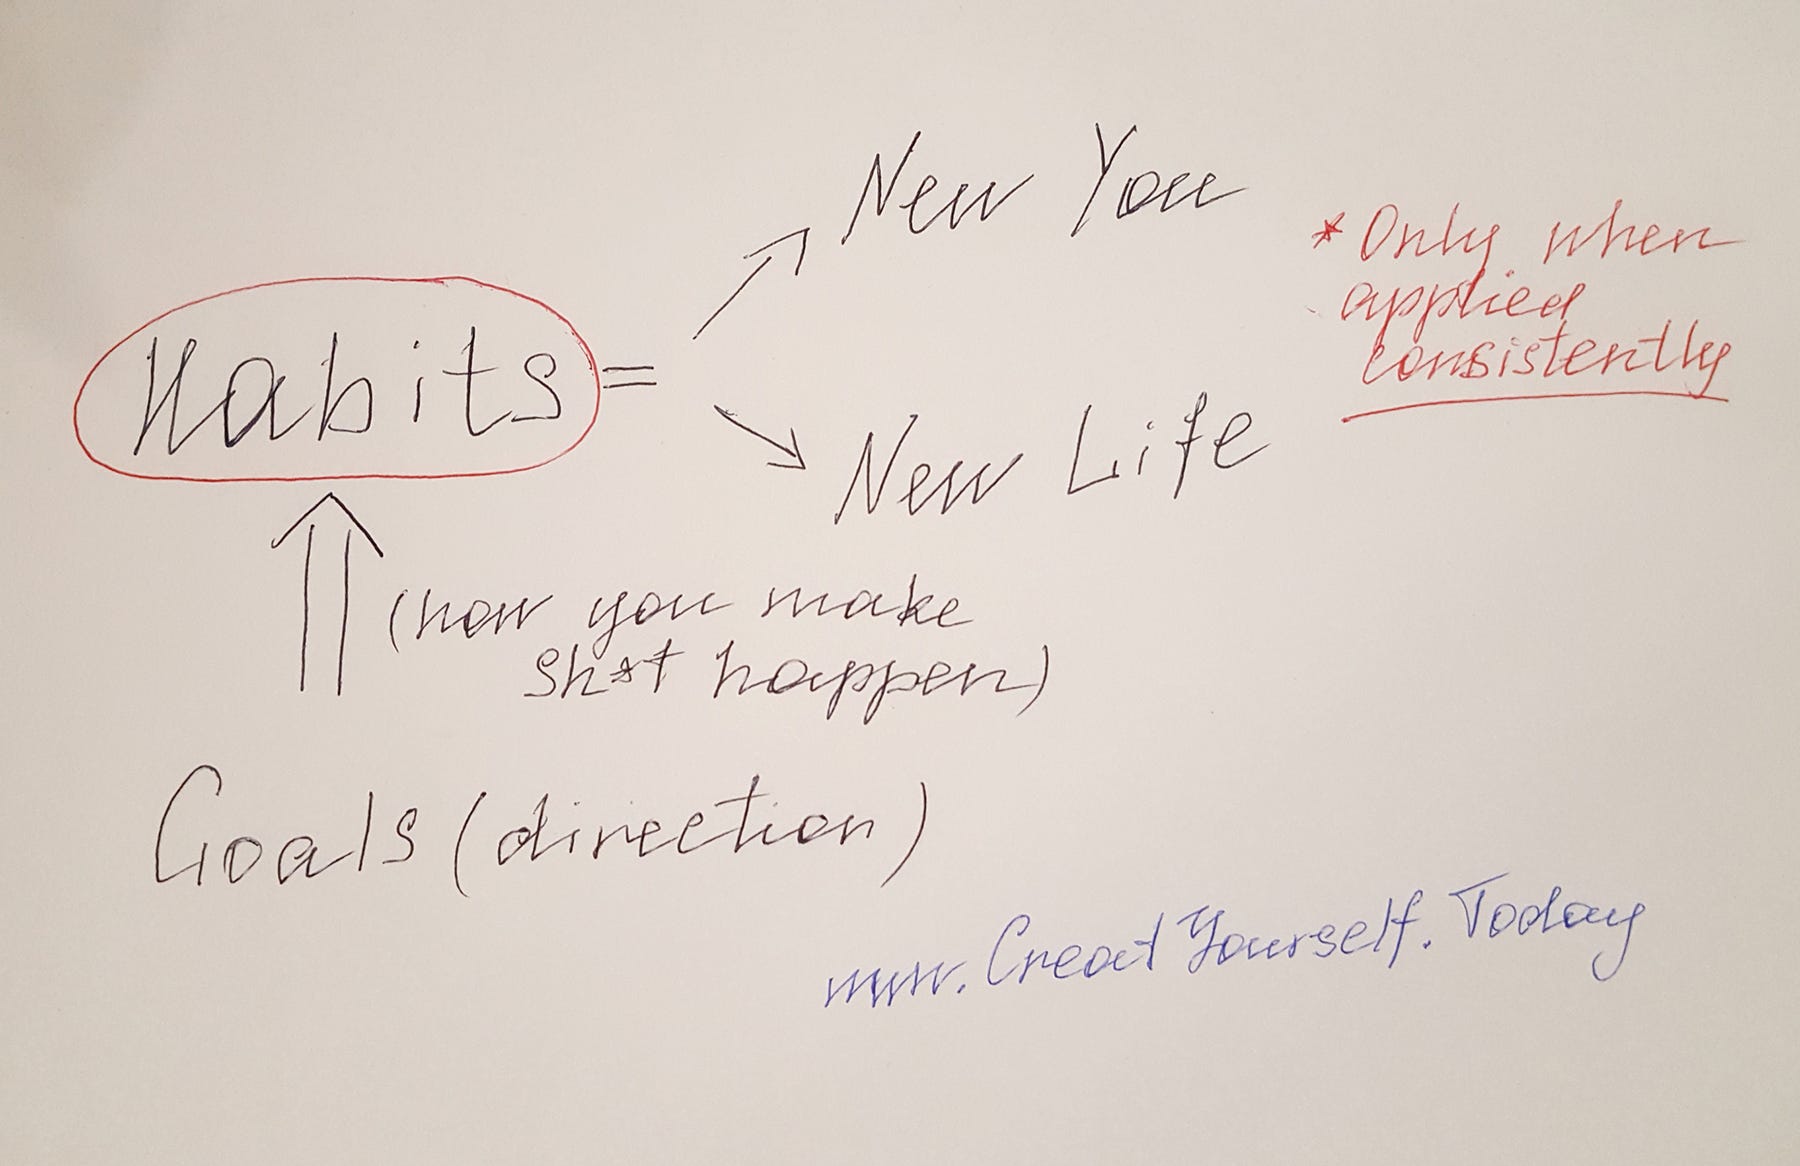 New You
*Only when
applied
consistently
Habits =
New Life
(how you make
sh*t happen)
Goals (direction)
www.CreatYourself.Today